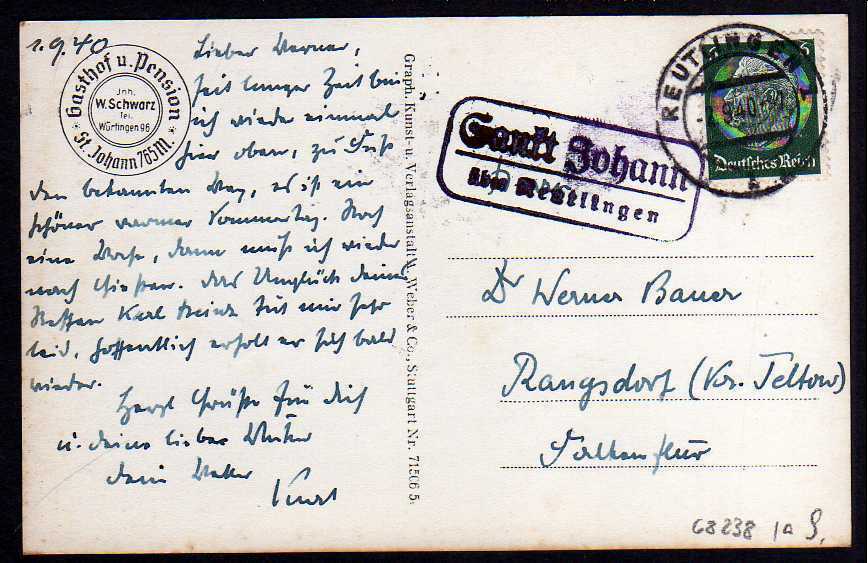 1.9.40
Gasthof u. Pension
Inh.
W. Schwarz
Tel.
Würtingen 96
St. Johann 765M.
Lieber Werner,
seit langer Zeit bin
ich wieder einmal
hier oben, zu Fuß
den bekannten Weg, es ist ein
schöner warmer Sommertag. Noch
eine Woche, dann muß ich wieder
nach Gießen. Das Unglück deines
Neffen Karl Heinz tut mir sehr
leid, hoffentlich erholt er sich bald
wieder.
Herzl Grüße für Dich
u. deine liebe Mutter
dein Vetter
Kurt
Graph. Kunst- u. Verlagsanstalt Weber & Co., Stuttgart Nr. 71506 5
Sankt Johann
über Reutlingen
REUTLINGEN 1
6
Deutsches Reich
Dr Werner Bauer
Rangsdorf (Kr. Teltow)
Falkenflur
68238 1a